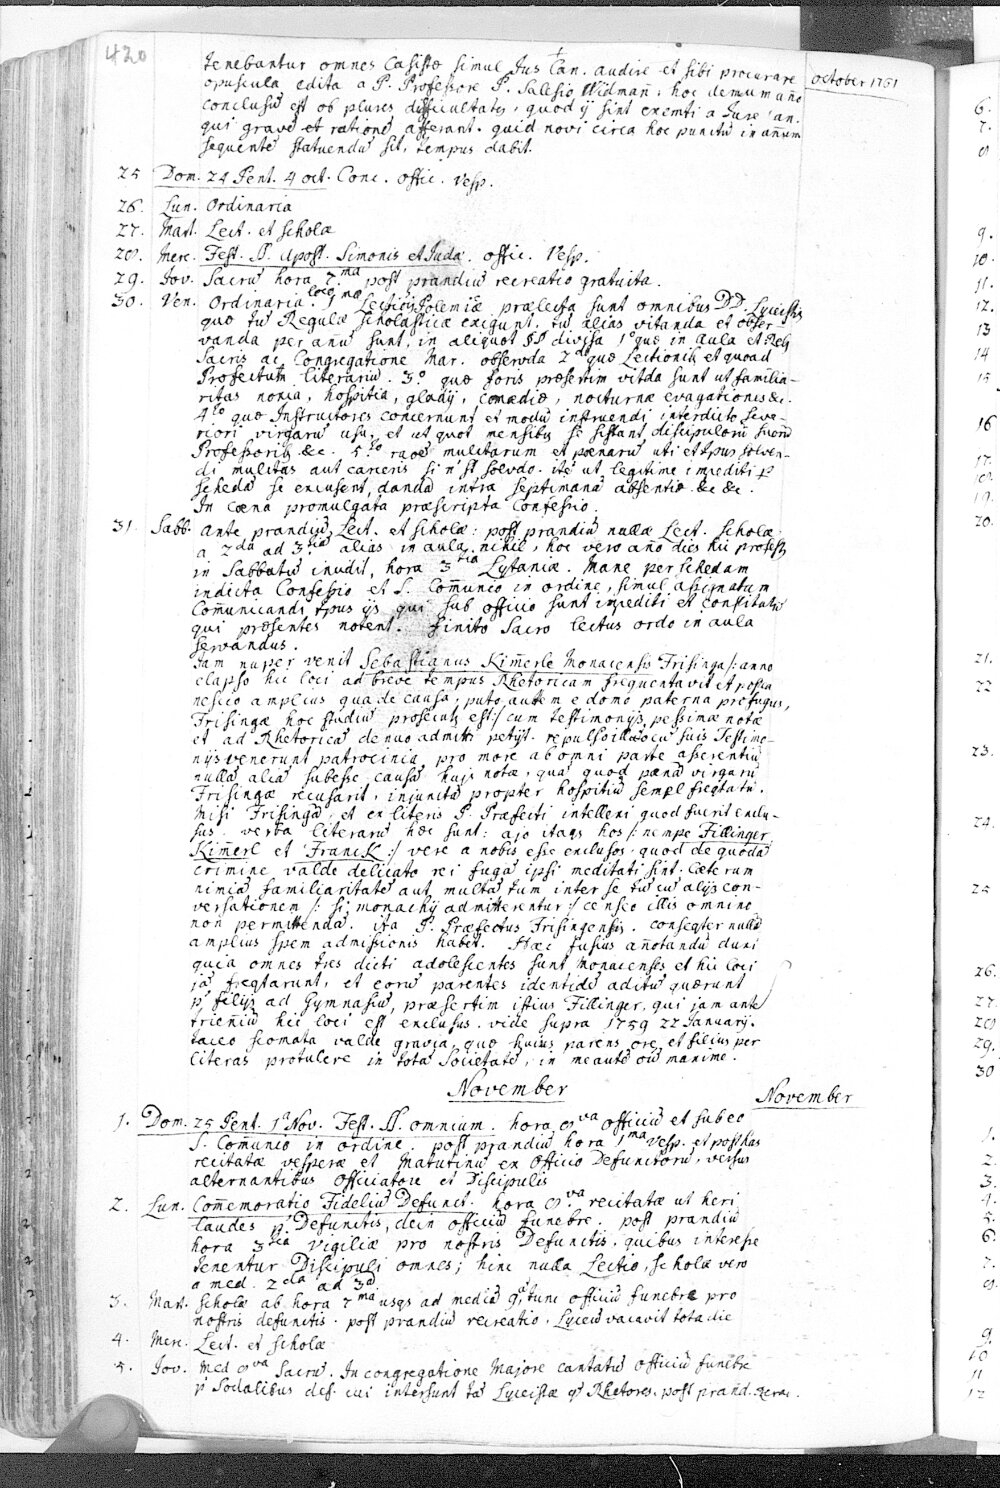 420
October 1761
tenebantur omnes Casistæ simul Jus Can. audire et sibi procurare
opuscula edita a P. Professore P. Salesio Widman̄, hoc demum año
conclusū est ob plures difficultates, quod ij sint exempti a Jure Can.
qui gravē et rationē afferant. quid novi circa hoc punctū in añum
sequentē statuendū sit, tempus dabit.
25 Dom. 24 Pent. 4 oct. Conc. offic. Vesp.
26. Lun. Ordinaria
27. Mart. Lect. et scholæ
28. Merc. Fest. SS. Apost. Simonis et Judæ. offic. Vesp.
29. Jov. Sacrū hora 7.ma post prandiū recreatio gratuita.
30. Ven. Ordinaria. loco 1mæ Lectionis Polemicæ prælecta sunt omnibus DD. Lyceistis
quæ tū Regulæ scholasticæ exigunt, tū alias vitanda et obser-
vanda per anū sunt, in aliquot §§ divisa 1o quæ in aula et Reb9
Sacris ac Congregatione Mar. observda 2do quæ Lectiones et quoad
Profectum literariū. 3.o quæ foris præsertim vitda sunt ut familia-
ritas noxia, hospitia, gladij, comædiæ, nocturnæ evagationes &c.
4to quæ Instructores concernunt et modū instruendi interdicto seve-
riori virgarū usu, et ut quot mensibus se sistant discipulorū suorū
Professoribus &c. 5.to raõe mulctarum et pænarū uti et tpus solven-
di mulctas aut carceris si n̄ st solvdo. itē ut legitime impediti p
schedā se excusent, dandā intra septimanā absentiæ &c &c.
In cæna promulgata præscripta Confessio.
31. Sabb. Ante prandiū Lect. et scholæ: post prandiū nullæ Lect. scholæ
a 2da ad 3tia alias in aula nihil, hoc vero año dies hic profestus
in Sabbatū incidit, hora 3tia Lytaniæ. Mane per schedam
indicta Confessio et S. Com̄unio in ordine, simul assignatum
Com̄unicandi tpus ijs qui sub officio sunt impediti et constitutū
qui præsentes notent. Finito Sacro lectus ordo in aula
servandus.
Jam nuper venit Sebastianus Kim̄erle Monacensis Frisinga /: anno
elapso hic loci ad breve tempus Rhetoricam frequentavit et postea
nescio amplius qua de causa, puto autem e domo paterna profugus,
Frisingæ hoc studiū prosecut9 est :/ cum testimonijs pessimæ notæ
et ad Rhetoricā denuo admitti petijt. repulso illico cū suis Testimo-
nijs venerunt patrocinia, pro more ab omni parte asserentiū
nullā aliā subesse causā huj9 notæ, quā quod pænā virgarū
Frisingæ recusarit, injunctā propter hospitiū semel freqtatū.
Misi Frisingā, et ex literis P. Præfecti intellexi quod fuerit exclu-
sus. verba literarū hæc sunt: ajo itaqs hos /: nempe Fillinger,
Kim̄erl et Franck :/ vere a nobis esse exclusos. quod de quodā
crimine valde delicato rei fuga ipsi meditati sint. Cæterum
nimia familiaritatē aut multā tum inter se tū cū alijs con-
versationem /: si monachij admitterentur :/ censeo illis omnino
non permittendā. ita P. Præfectus Frisingensis. conseqter nullā
amplius spem admissionis habet. Hæc fusius añotandū duxi
quia omnes tres dicti adolescentes sunt Monacenses et hic loci
jā freqtarunt, et eorū parentes identidē aditū quærunt
p filijs ad Gymnasiū, præsertim istius Fillinger, qui jam ante
trieñiū hic loci est exclusus. vide supra 1759 22 Januarij.
taceo scomata valde gravia, quæ huius parens ore et filius per
literas protulere in totā Societatē, in me autē oīū maxime.
November
November
1. Dom. 25 Pent. 1a Nov. Fest. SS. omnium. hora 8va officiū et sub eo
S. Com̄unio in ordine. post prandiū hora 1ma Vesp. et post has
recitatæ vesperæ et Matutinū ex Officio Defunctorū, versus
alternantibus Officiatore et Discipulis
2. Lun. Com̄emoratio Fideliū Defunct. hora 8va recitatæ ut heri
laudes p Defunctis, dein officiū funebre. post prandiū
hora 3tia Vigiliæ pro nostris Defunctis. quibus interesse
tenentur Discipuli omnes; hinc nulla Lectio, scholæ vero
a med. 2da ad 3ā
3. Mart. Scholæ ab hora 7ma usqs ad mediā 9ā, tunc officiū funebre pro
nostris defunctis. post prandiū recreatio. Lyceū vacavit tota die
4. Merc. Lect. et scholæ
5. Jov. med 8va Sacrū. In congregatione Majore cantatū officiū funebre
p Sodalibus def. cui intersunt tā Lyceistæ q̄ Rhetores. post prand. recrea.